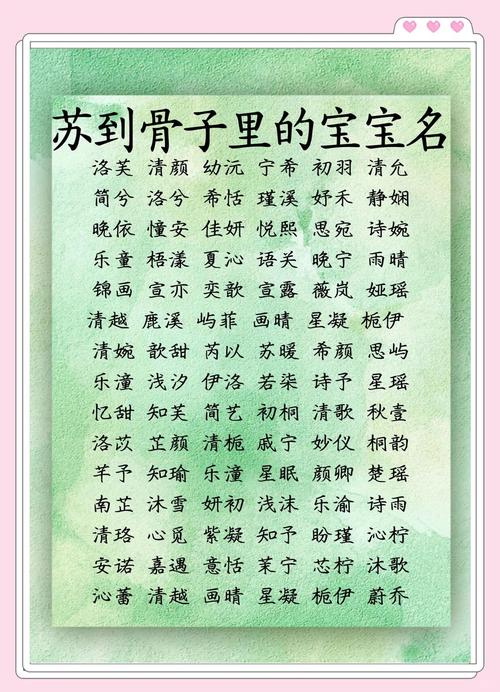 苏到骨子里的宝宝名
洛芙 清颜 幼沅 宁希 初羽 清允
简兮 洛兮 希恬 瑾溪 妤禾 静娴
晚依 憧安 佳妍 悦熙 思宛 诗婉
乐童 梧漾 夏沁 语关 晚宁 雨晴
锦画 宣亦 奕歆 宣露 薇岚 娅瑶
清越 鹿溪 屿菲 画晴 星凝 栀伊
清婉 歆甜 芮以 苏暖 希颜 思屿
乐潼 浅汐 伊洛 若柒 诗予 星瑶
忆甜 知芙 简艺 初桐 清歌 秋壹
洛苡 芷颜 清栀 戚宁 妙仪 桐韵
芊予 知瑜 乐潼 星眠 颜卿 楚瑶
南芷 沐雪 妍初 浅沫 乐渝 诗雨
清珞 心觅 紫凝 知予 盼瑾 沁柠
安诺 嘉遇 意恬 茉宁 芯柠 沐歌
沁蕾 清越 画晴 星凝 栀伊 蔚乔